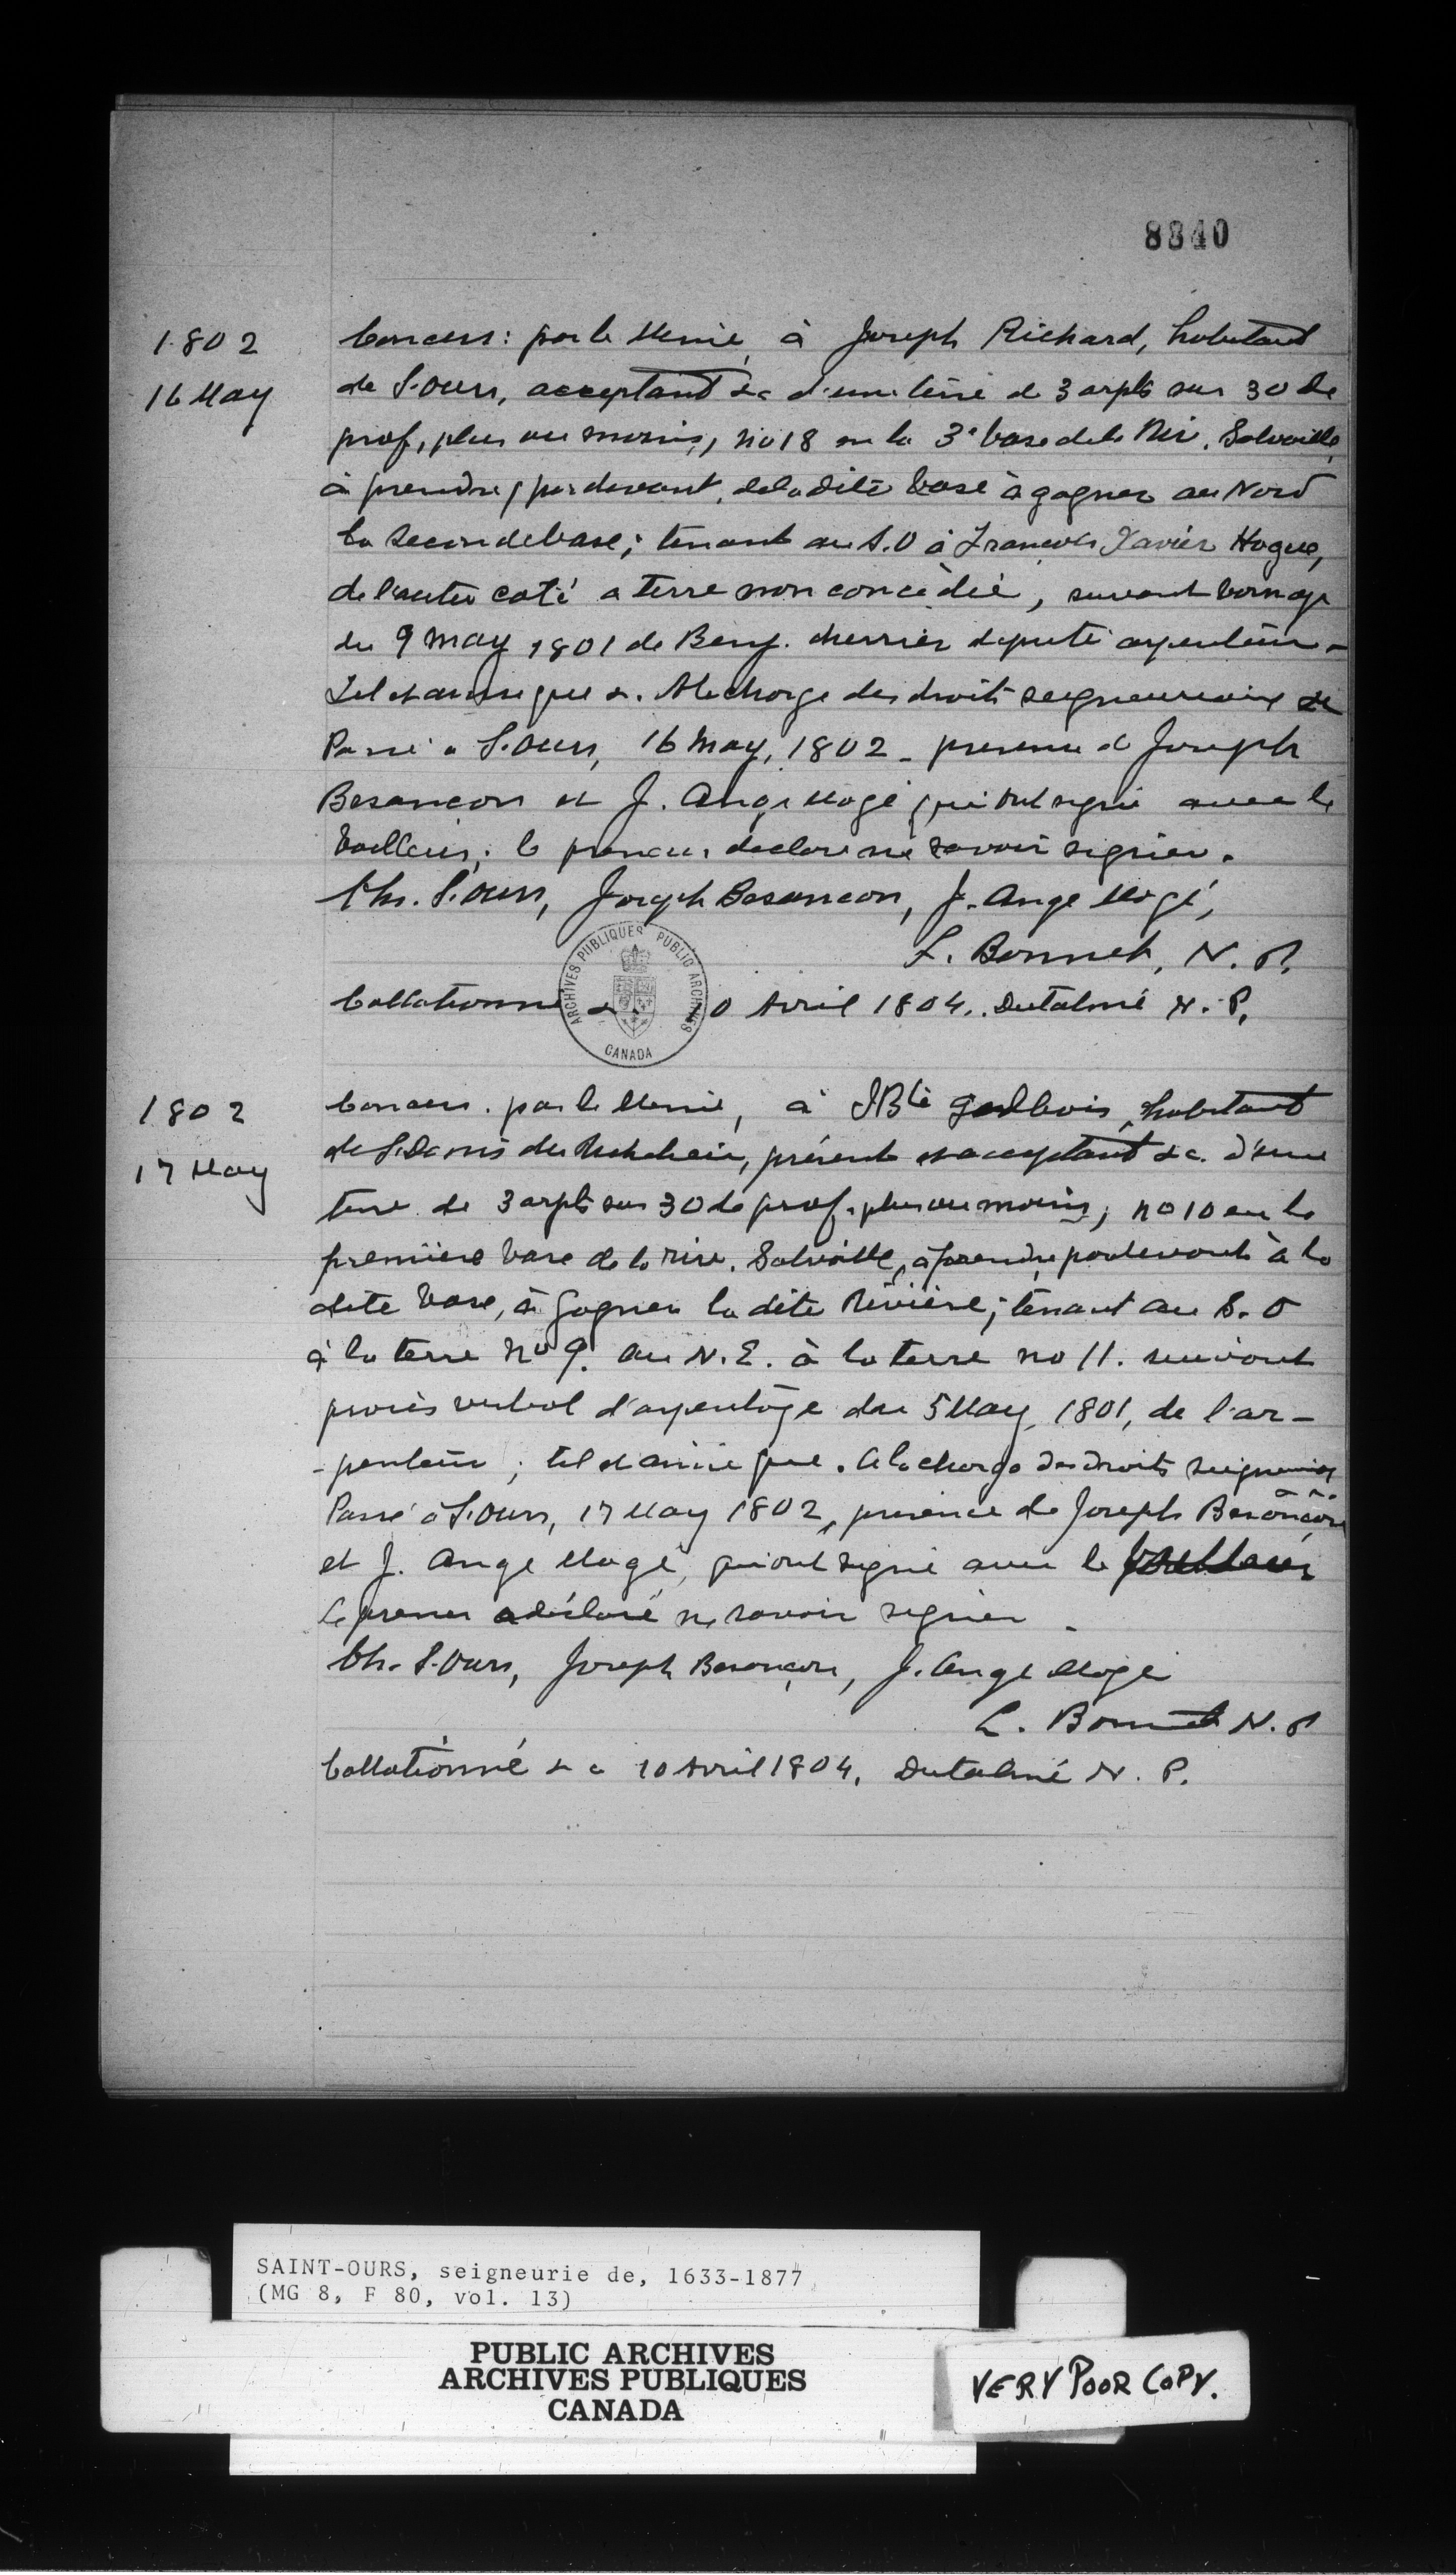 8840
1802
16 May
Concess: par le Meme, à Joseph Richard, habitant
de S. Ours, acceptant &c d'une terre de 3 arpts sur 30 de
prof, plus ou moins, no 18 en la 3e base de la Riv. Salvaille,
à prendre, par devant, de la dite base à gagner au Nord
la seconde base; tenant au S.O à Francois Xavier Hogue,
de l'autre coté a terre non concédée, suivant bornage
du 9 May 1801 de Benj. cherrier deputé arpenteur -
Tel et ainsi que &. A la charge des droits seigneuriaux &c
Passé a S. Ours, 16 May, 1802 - presence de Joseph
Besancon et J. Ange Mogé, qui ont signé avec le
bailleur; le preneur declare ne savoir signer.
Chs. S. Ours, Joseph Besancon, J. Ange Mogé,
L. Bonnet, N. P.
Collationné & 0 Avril 1804. Dutalmé N. P.
ARCHIVES PUBLIQUES PUBLIC ARCHIVES
CANADA
1802
17 May
Concess. par le Meme, à JBte habitant
de S. Denis du present et acceptant &c. d'une
terre de 3 arpts sur 30 de prof. plus ou moins, no 10 en la
première base de la rivr. Salvaille, à prendre par devant à la
dite base, à gagner la dite Rivière; tenant au S. O
à la terre no 9. au N.E. à la terre no 11. suivant
procès verbal d'arpentage du 5 May, 1801, de l'ar-
-penteur; tel et ainsi que. A la charge des droits seigneuriaux
Passé à S. Ours, 17 May 1802, presence de Joseph Besançon
et J. Ange Mogé, qui ont signé avec le bailleur
le preneur a déclaré ne savoir signer -
Ch. S. Ours, Joseph Besançon, J. Ange Mogé
L. Bonnet N. P
Collationné & c 10 Avril 1804. Dutalmé N. P.
SAINT-OURS, seigneurie de, 1633-1877
(MG 8, F 80, vol. 13)
PUBLIC ARCHIVES
ARCHIVES PUBLIQUES
CANADA
VERY POOR COPY.